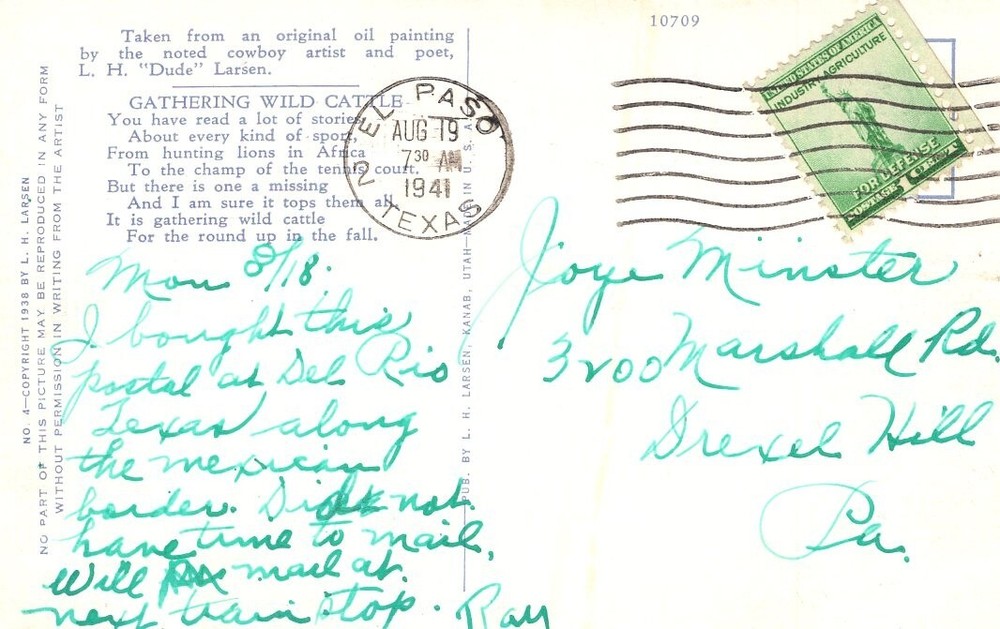 10709
Taken from an original oil painting
by the noted cowboy artist and poet,
L. H. "Dude" Larsen.
GATHERING WILD CATTLE
You have read a lot of stories
About every kind of sport,
From hunting lions in Africa
To the champ of the tennis court.
But there is one a missing
And I am sure it tops them all
It is gathering wild cattle
For the round up in the fall.
NO. 4—COPYRIGHT 1938 BY L. H. LARSEN
NO PART OF THIS PICTURE MAY BE REPRODUCED IN ANY FORM
WITHOUT PERMISSION IN WRITING FROM THE ARTIST
PUB. BY L. H. LARSEN, KANAB, UTAH—MADE IN U. S. A.
EL PASO
AUG 19
7 30 AM
1941
2 TEXAS
UNITED STATES OF AMERICA
INDUSTRY AGRICULTURE
FOR DEFENSE
POSTAGE 1 CENT
Mon 8/18.
I bought this
postal at Del Rio
Texas along
the mexican
border. Did not
have time to mail,
Will mail at
next train stop. Ray
Joye Minster
3200 Marshall Rd.
Drexel Hill
Pa.